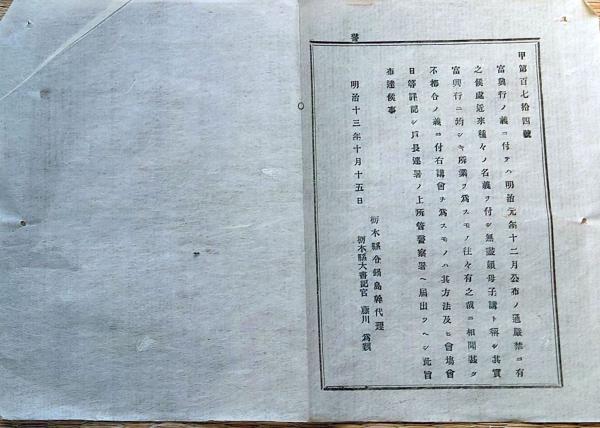 警
甲第百七拾四號
富興行ノ義ニ付テハ明治元年十二月公布ノ通嚴禁ニ有
之候處近來種々ノ名義ヲ付シ無盡頼母子講ト稱シ其實
富興行ニ均シキ所業ヲ爲スモノ往々有之哉ニ相聞甚タ
不都合ノ義ニ付右講會ヲ爲スモノハ其方法及ヒ會塲會
日等詳記シ戸長連署ノ上所管警察署ヘ屆出ツヘシ此旨
布達候事
明治十三年十月十五日
栃木縣令鍋島幹代理
栃木縣大書記官 藤川爲親